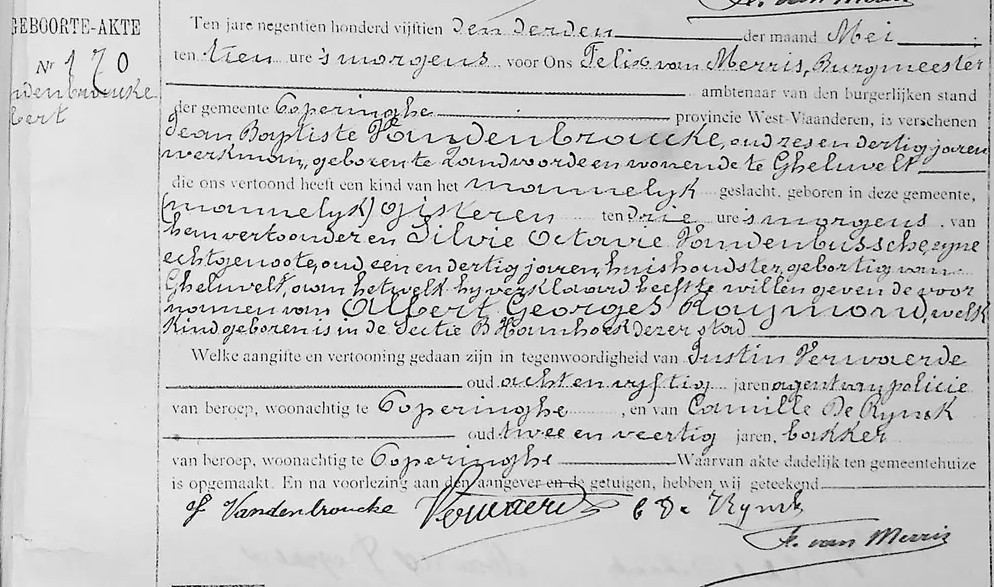 GEBOORTE-AKTE
Nr 170
ndenbroucke
bert
F. van Merris
Ten jare negentien honderd vijftien den derden der maand Mei ;
ten tien ure 's morgens voor Ons Felix van Merris, Burgmeester
ambtenaar van den burgerlijken stand
der gemeente Poperinghe provincie West-Vlaanderen, is verschenen
Jean Baptiste Vandenbroucke, oud zes en dertig jaren
werkman, geboren te Zandvoorde en wonende te Gheluwelt
die ons vertoond heeft een kind van het mannelyk geslacht, geboren in deze gemeente,
(mannelyk) gisteren ten drie ure 's morgens, van
hem vertoonder en Silvie Octavie Vandenbussche, zyne
echtgenoote, oud een en dertig jaren, huishoudster, geboortig van
Gheluwelt, aan hetwelk hy verklaard heeft te willen geven de voor
namen van Albert Georges Raymond, welk
kind geboren is in de Sectie B Hamhoek dezer stad
Welke aangifte en vertooning gedaan zijn in tegenwoordigheid van Justin Verwaerde
oud acht en vyftig jaren agent van policie
van beroep, woonachtig te Poperinghe, en van Camille De Rynck
oud twee en veertig jaren, bakker
van beroep, woonachtig te Poperinghe Waarvan akte dadelijk ten gemeentehuize
is opgemaakt. En na voorlezing aan den aangever en de getuigen, hebben wij geteekend
J Vandenbroucke Verwaerde C De Rynck
F. van Merris